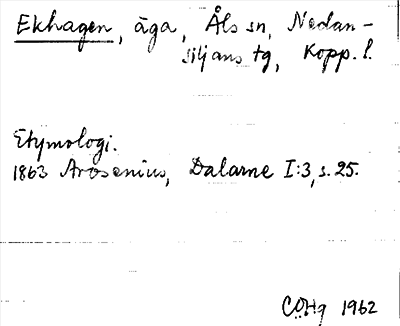 Ekhagen, äga, Åls sn, Nedan-
siljans tg, Kopp. l.
Etymologi.
1863 Arosenius, Dalarne I:3, s. 25.
CÖHg 1962